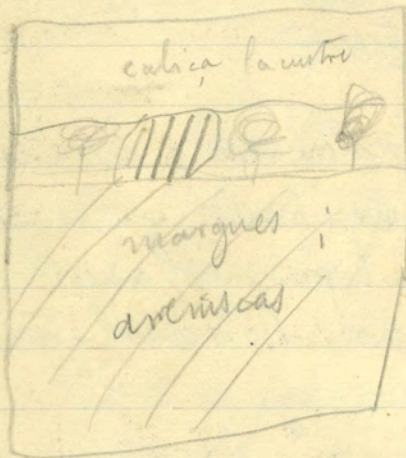 caliça lacustre
margues i
areniscas